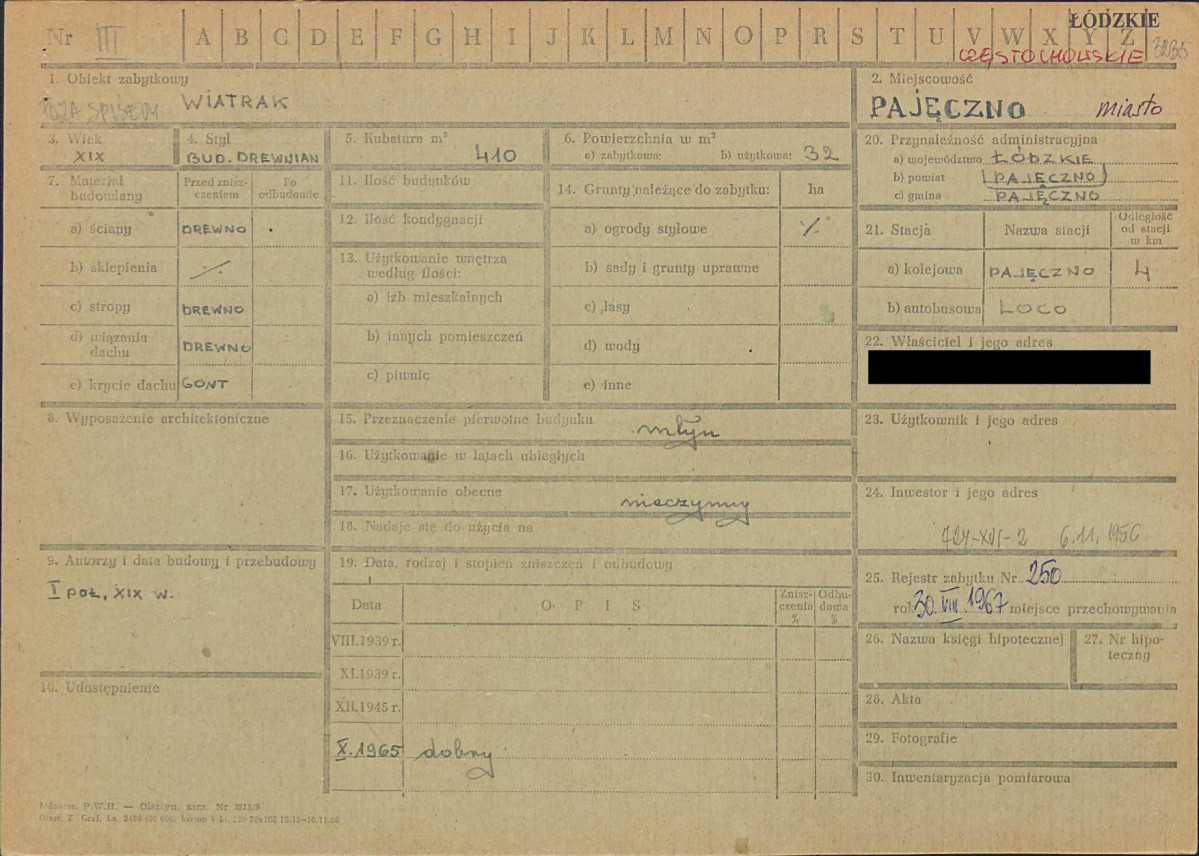 Nr III A B C D E F G H I J K L M N O P R S T U V W X Y Z
ŁÓDZKIE
CZĘSTOCHOWSKIE 3235
1. Obiekt zabytkowy
POZA SPISEM WIATRAK
2. Miejscowość
PAJĘCZNO miasto
3. Wiek
XIX
4. Styl
BUD. DREWNIAN
5. Kubatura m³
410
6. Powierzchnia w m²
a) zabytkowa: b) użytkowa: 32
7. Materiał budowlany
Przed zniszczeniem
Po odbudowie
a) ściany DREWNO
b) sklepienia ·/·
c) stropy DREWNO
d) wiązania dachu DREWNO
e) krycie dachu GONT
8. Wyposażenie architektoniczne
9. Autorzy i data budowy i przebudowy
I poł. XIX w.
10. Udostępnienie
11. Ilość budynków
12. Ilość kondygnacji
13. Użytkowanie wnętrza
według ilości:
a) izb mieszkalnych
b) innych pomieszczeń
c) piwnic
14. Grunty należące do zabytku: ha
a) ogrody stylowe ·/·
b) sady i grunty uprawne
c) lasy
d) wody
e) inne
15. Przeznaczenie pierwotne budynku
młyn
16. Użytkowanie w latach ubiegłych
17. Użytkowanie obecne
nieczynny
18. Nadaje się do użycia na
19. Data, rodzaj i stopień zniszczeń i odbudowy
Data OPIS Zniszczenia % Odbudowa %
VIII.1939 r.
XI.1939 r.
XII.1945 r.
X.1965 dobry
20. Przynależność administracyjna
a) województwo ŁÓDZKIE
b) powiat PAJĘCZNO
c) gmina PAJĘCZNO
21. Stacja Nazwa stacji Odległość od stacji w km
a) kolejowa PAJĘCZNO 4
b) autobusowa LOCO
22. Właściciel i jego adres
23. Użytkownik i jego adres
24. Inwestor i jego adres
724-XVI-2 6.11.1956
25. Rejestr zabytku Nr 250
rok 30.VIII.1967 miejsce przechowywania
26. Nazwa księgi hipotecznej
27. Nr hipoteczny
28. Akta
29. Fotografie
30. Inwentaryzacja pomiarowa
P.W.H. — Olsztyn, zam. Nr